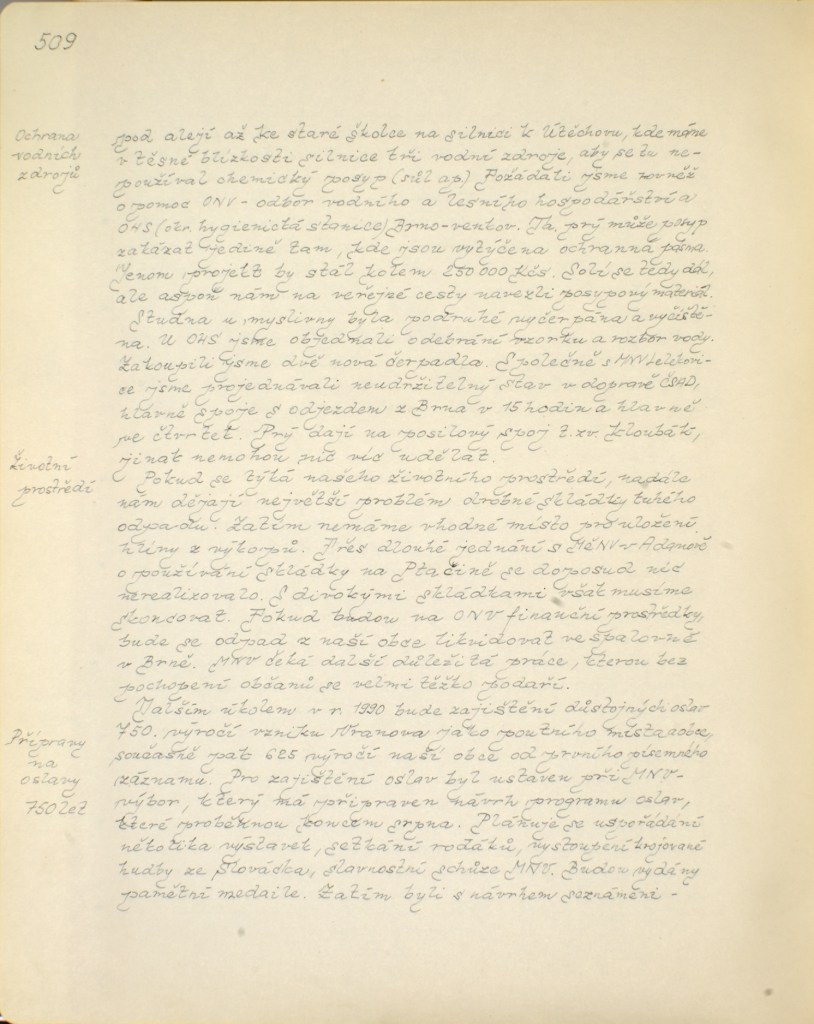 509
Ochrana
vodních
zdrojů
pod alejí až ke staré školce na silnici k Útěchovu, kde máme
v těsné blízkosti silnice tři vodní zdroje, aby se tu ne-
používal chemický posyp (sůl ap.) Požádali jsme rovněž
o pomoc ONV - odbor vodního a lesního hospodářství a
OHS (okr. hygienická stanice) Brno-venkov. Ta prý může posyp
zakázat jedině tam, kde jsou vytýčena ochranná pásma.
Jenom projekt by stál kolem 250 000 Kčs. Solí se tedy dál,
ale aspoň nám na veřejné cesty navezli posypový materiál.
Studna u myslivny byla podruhé vyčerpána a vyčiště-
na. U OHS jsme objednali odebrání vzorku a rozbor vody.
Zakoupili jsme dvě nová čerpadla. Společně s MNV Lelekovi-
ce jsme projednávali neudržitelný stav v dopravě ČSAD,
hlavně spoje s odjezdem z Brna v 15 hodin a hlavně
ve čtvrtek. Prý dají na posilový spoj t.zv. kloubák,
jinak nemohou nic víc udělat.
Životní
prostředí
Pokud se týká našeho životního prostředí, nadále
nám dějají největší problém drobné skládky tuhého
odpadu. Zatím nemáme vhodné místo pro uložení
hlíny z výkopů. Přes dlouhé jednání s MěNV v Adamově
o používání skládky na Ptačině se doposud nic
nerealizovalo. S divokými skládkami však musíme
skoncovat. Pokud budou na ONV finanční prostředky,
bude se odpad z naší obce likvidovat ve spalovně
v Brně. MNV čeká další důležitá práce, kterou bez
pochopení občanů se velmi těžko podaří.
Dalším úkolem v r. 1990 bude zajištění důstojných oslav
Přípravy
na
oslavy
750 let
750. výročí vzniku Vranova jako poutního místa a obce,
současně pak 625 výročí naší obce od prvního písemného
záznamu. Pro zajištění oslav byl ustaven při MNV-
výbor, který má připraven návrh programu oslav,
které proběhnou koncem srpna. Plánuje se uspořádání
několika výstavek, setkání rodáků, vystoupení krojované
hudby ze Slovácka, slavnostní schůze MNV. Budou vydány
pamětní medaile. Zatím byli s návrhem seznámeni -